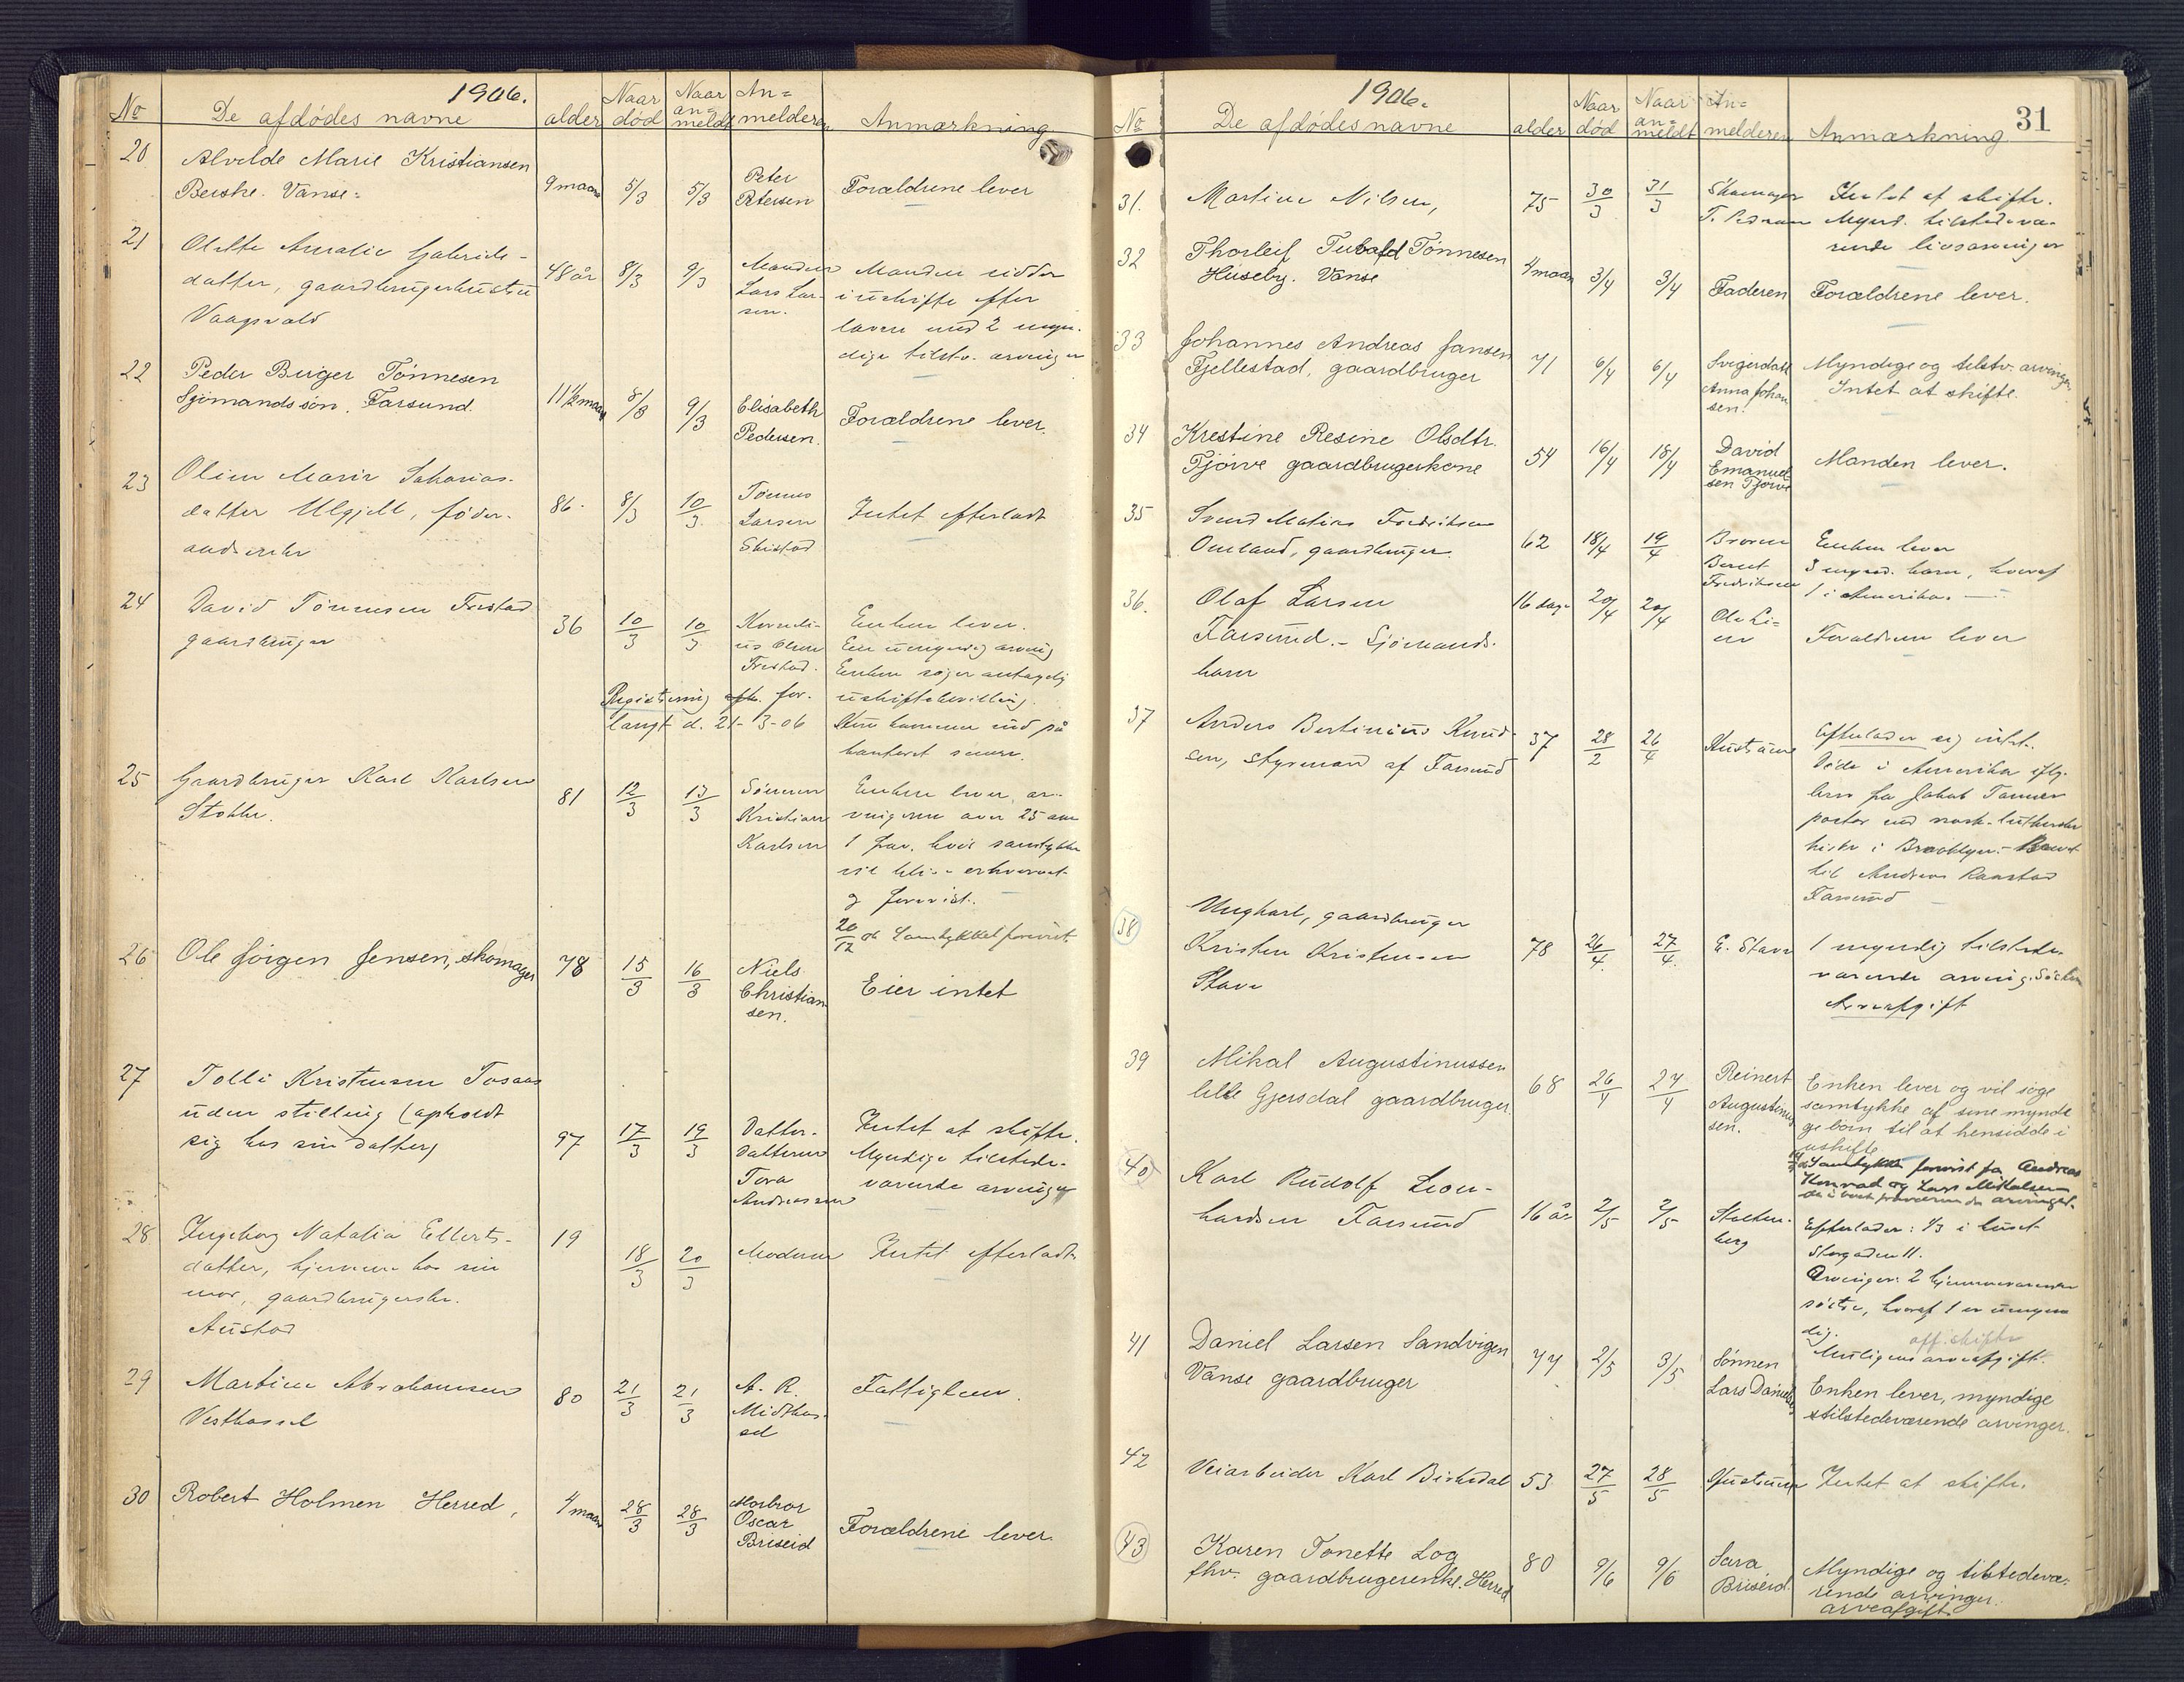 1906.
No De afdödes navne alder Naar död Naar an=meldt An=melderen Anmærkning
20 Alvilde Marie Kristiansen
Berthe. Vanse: 9 maan 5/3 5/3 Peter Petersen Forældrene lever
21 Olette Amalie Gabriels-
datter, gaardbrugerhustru 48 år 8/3 9/3 Manden Lars Lar-sen. Manden sidder
i uskifte efter
loven med 2 myn-
dige tilstv. arvinger
Vaagsvold
22 Peder Birger Tönnesen
Sjömandssön. Farsund. 11 1/2 maan 8/3 9/3 Elisabeth Pedersen. Forældrene lever.
23 Oline Marie Sakarias-
datter Ulgjell, föder- 86. 8/3 10/3 Tönnes Larsen Skistad Intet efterladt
aadsenke
24 David Tönnesen Frestad
gaardbruger 36 10/3 10/3 Korneli-us Olsen Frestad. Enken lever.
Een umyndig arving
Enken söger antagelig
uskiftebevilling.
Registrering for-
langt d. 21-3-06 Den kommer ind på
kontoret senere.
25 Gaardbruger Karl Karlsen
Stokke. 81 12/3 13/3 Sönnen Kristian Karlsen Enken lever, ar-
vingerne over 25 aar
1 frav. hvis samtykke
vil bli erhvervet
og forevist.
20/12 06 Samtykket forevist.
26 Ole Jörgen Jensen, skomager 78 15/3 16/3 Niels Christiansen. Eier intet
27 Tolli Kristensen Tosaas
uden stilling (opholdt
sig hos sin datter) 97 17/3 19/3 Datter-datteren Tora Andreassen Intet at skifte.
Myndige tilstede-
værende arvinger
28 Ingeborg Natalia Ellerts- 19 18/3 20/3 Moderen Intet efterladt.
datter, hjemme hos sin
mor, gaardbrugerske.
Austad
29 Martine Abrahamsen
Vesthassel 80 21/3 21/3 A. R. Midthas-sel Fattiglem.
30 Robert Holmen Herred, 4 maan 28/3 28/3 Morbror Oscar Briseid Forældrene lever.
1906.
31
No De afdödes navne alder Naar död Naar an=meldt An=melderen Anmærkning
31. Martine Nilsen, 75 30/3 31/3 Skomager T. Intet at skifte.
Mynd. tilstedevæ-
rende livsarvinger
32 Thorleif Tubald Tönnesen
Huseby. Vanse 4 maan 3/4 3/4 Faderen Forældrene lever.
33 Johannes Andreas Jansen
Fjellestad, gaardbruger 71 6/4 6/4 Svigerdatt Anna Johansen. Myndige og tilstv. arvinger
Intet at skifte.
34 Krestine Resine Olsdtr.
Tjörve gaardbrugerkone 54 16/4 18/4 David Emanuelsen Tjörve Manden lever.
35 Svend Matias Fredriksen
Omland, gaardbruger. 62 18/4 19/4 Broren Bernt Fredriksen Enken lever
3 mynd. barn, hvoraf
1 i Amerika.
36. Olaf Larsen 16 dage 20/4 20/4
Farsund. - Sjömands- Forældrene lever
barn
37 Anders Bertinius Knud-
sen, styrmand af Farsund 37 28/2 26/4 Hustruen Efterlader sig intet.
Döde i Amerika iflg.
brev fra Jakob Tanner
pastor ved norsk-lutherske
kirke i Brooklyn. - Brevet
til Andreas Raastad
Farsund
38 Ungkarl, gaardbruger
Kristen Kristensen 78 26/4. 27/4. E. Stave 1 myndig tilstede-
værende arving. Sösteren
Stave
Arveafgift
39 Mikal Augustinussen
lille Gjersdal gaardbruger. 68 26/4 27/4 Reinert Augustinussen. Enken lever og vil söge
samtykke af sine myndi
ge börn til at hensidde i
uskifte
Samtykke forevist fra Andreas
Konrad og Lars Mikalsen
40 Karl Rudolf Leon-
hardsen Farsund 16 år 2/5 2/5 Stolten-berg Efterlader: 1/3 i huset
Storgaden 11.
Arvinger: 2 hjemmeværende
söstre, hvoraf 1 er umyn
dig. off. skifte
Muligens arveafgift.
41 Daniel Larsen Sandvigen
Vanse gaardbruger 77 2/5 3/5 Sönnen Lars Daniels. Enken lever, myndige
tilstedeværende arvinger.
42 Veiarbeider Karl Birkedal 53 27/5 28/5 Hustruen Intet at skifte.
43 Karen Tonette Log
fhv. gaardbrugerenke. Herred 80 9/6 9/6 Sara Briseid. Myndige og tilstedevæ-
rende arvinger.
arveafgift